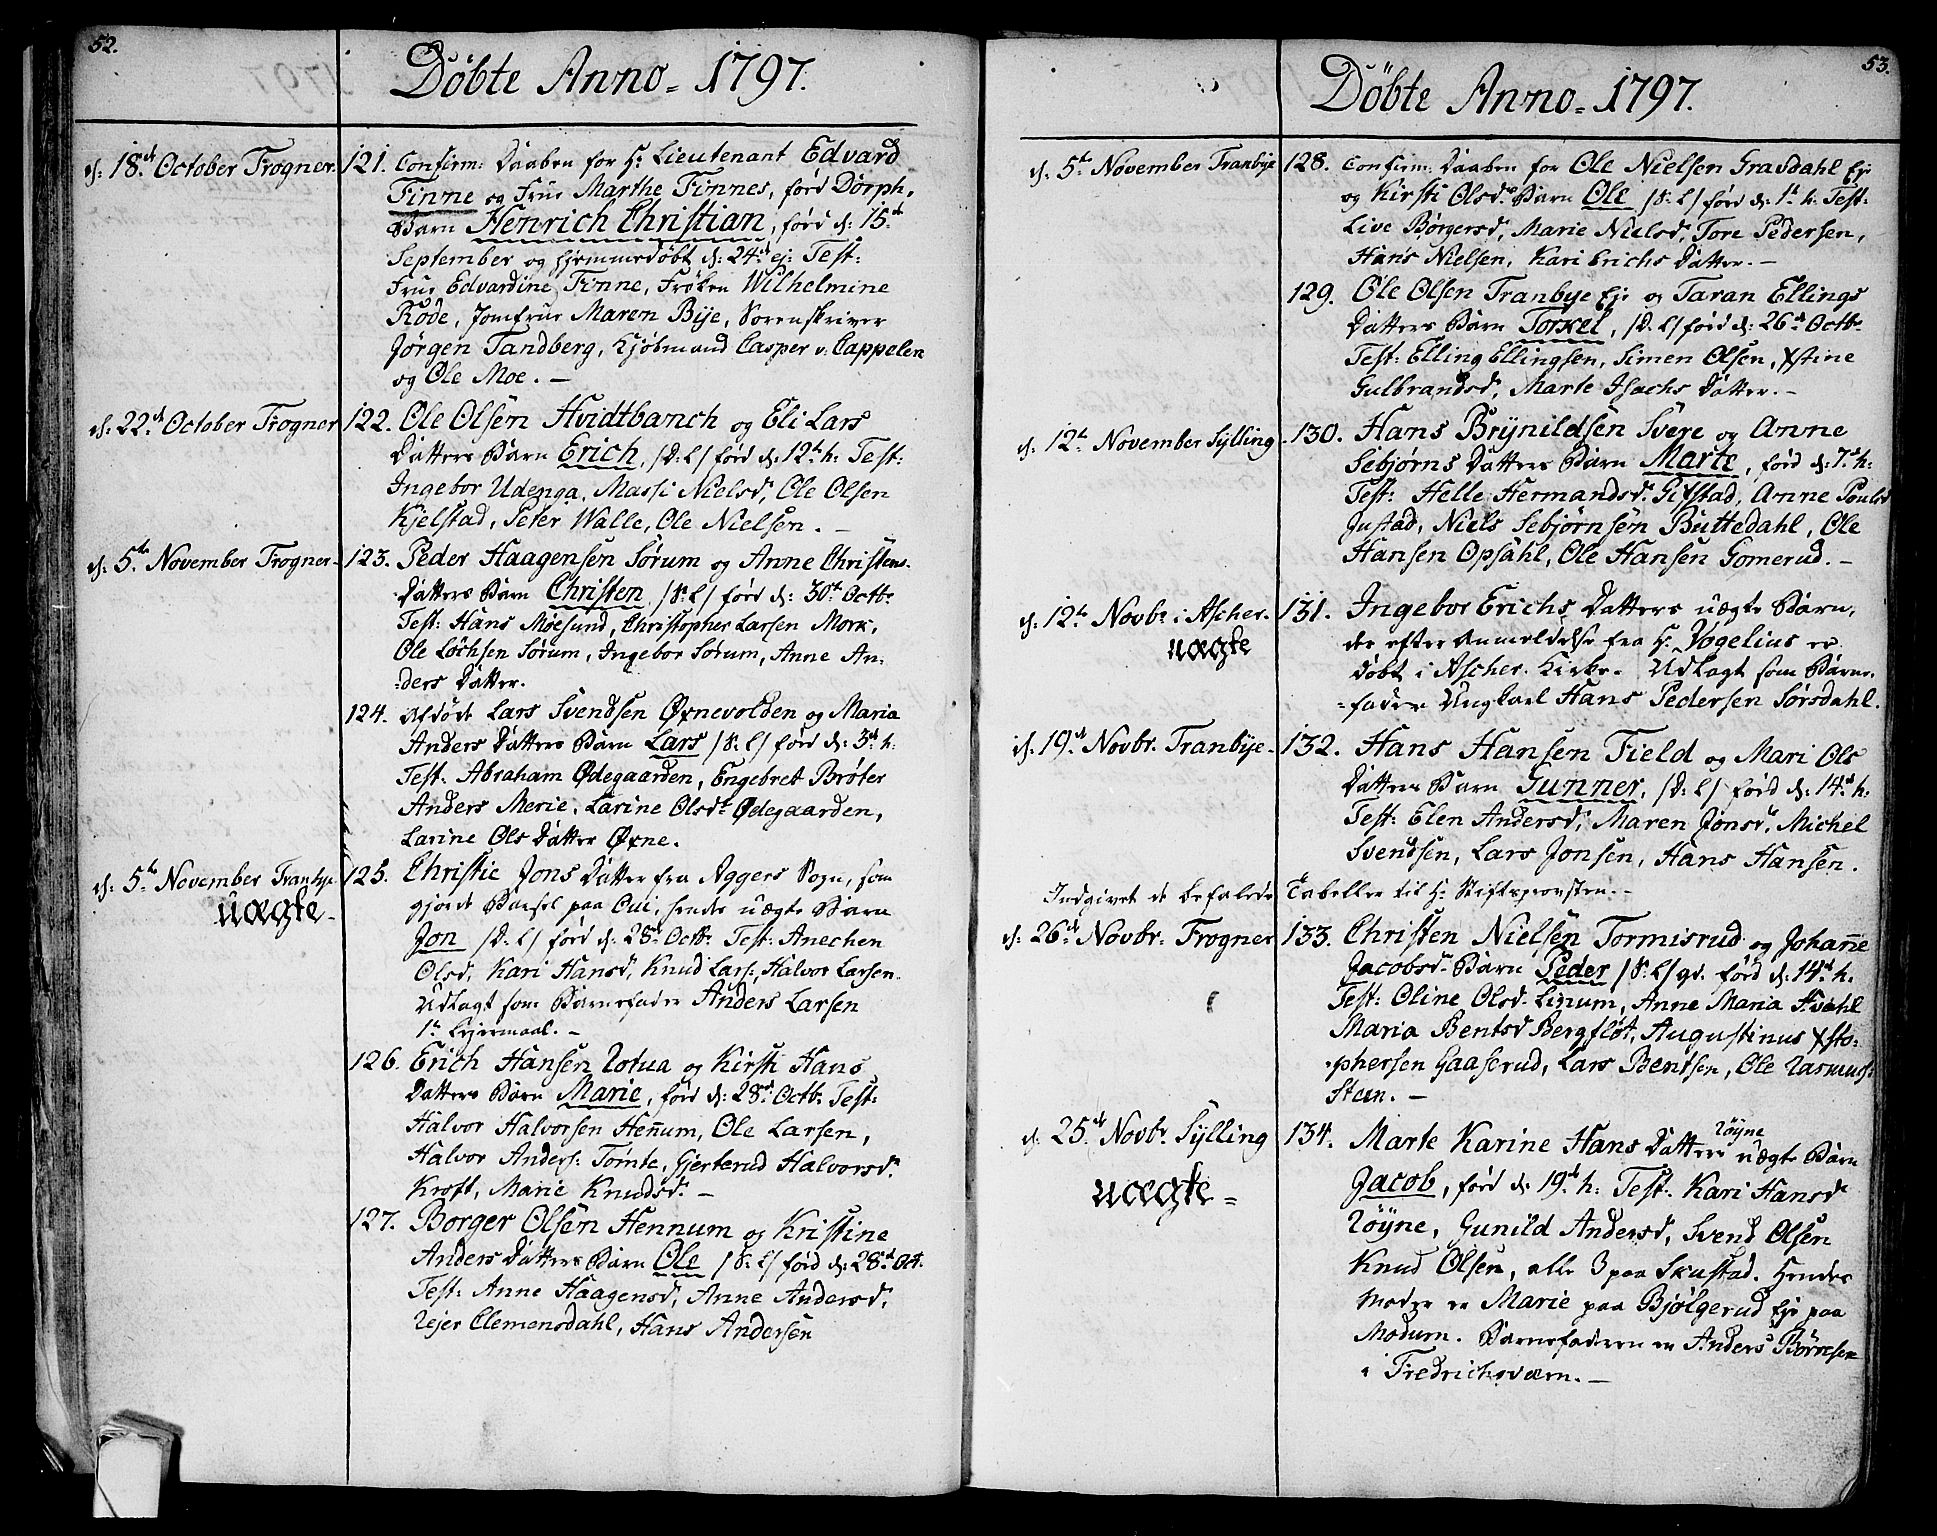 52.
Döbte Anno = 1797.
d: 18de October Frogner.
121. Confirm: Daaben for Hr Lieutenant Edvard
Finne og Frue Marthe Finnes, förd Dorph,
Barn Henrich Christian, förd d: 15de
September og hjemmedöbt d: 24de ej: Test:
Frue Edvardine Finne, Fröken Wilhelmine
Röde, Jomfrue Maren Bije, Sorenskriver
Jörgen Tandberg, Kjöbmand Casper v: Cappelen
og Ole Moe. –
d: 22de October Frogner
122. Ole Olsen Hvidtbanch og Eli Lars
Datters Barn Erich, /D: L/ förd d: 12te h: Test:
Ingebor Udenga, Massi Nielsd, Ole Olsen
Kjelstad, Peter Walle, Ole Nielsen. –
d: 5te November Frogner –
123. Peder Haagensen Sörum og Anne Christens-
Datters Barn Christen /S: L/ förd d: 30te Octbr
Test: Hans Möesund, Christopher Larsen Mork,
Ole Löchsen Sörum, Ingebor Sörum, Anne An-
:ders Datter.
124. Afdöde Lars Svendsen Öxnevolden og Maria
Anders Datters Barn Lars /S: L/ förd d: 3de h:
Test: Abraham Ödegaarden, Engebret Bröter
Anders Merie, Larine Olsdr Ödegaarden,
Larine Ols Datter Öxne.
d: 5te November Tranbye
uægte –
125. Christie Jons Datter fra Aggers Sogn, som
gjorde Barsel paa Oui, hendes uægte Barn
Jon /D: L/ förd d: 28de Octbr Test: Anechen
Olsd, Kari Hansd, Knud Lars: Halvor Larsen
Udlagt som Barnefader Anders Larsen
1te Lejermaal. –
126. Erich Hansen Totua og Kirsti Hans
Datters Barn Marie, förd d: 28de Octbr Test:
Halvor Halvorsen Hennum, Ole Larsen,
Halvor Anders: Tömte, Gjerterud Halvorsdr
Kroft, Marie Knudsdr –
127. Borger Olsen Hennum og Kristine
Anders Datters Barn Ole /S: L/ förd d: 28de Oct.
Test: Anne Haagensd, Anne Andersd,
Rejer Clemensdahl, Hans Andersen
53.
Döbte Anno = 1797.
d: 5te November Tranbye
128. Confirm: Daaben for Ole Nielsen Gravdahl Eje
og Kirsti Olsdrs Barn Ole /S: L/ förd d: 1te h: Test:
Live Börgersd, Marie Nielsd, Tore Pedersen,
Hans Nielsen, Kari Erichs Datter. –
129. Ole Olsen Tranbye Eje og Taran Ellings
Datters Barn Torkel, /D: L/ förd d: 26de Octbr
Test: Elling Ellingsen, Simen Olsen, Xstine
Gulbrandsd, Marte Isachs Datter. –
d: 12te November Sylling
130. Hans Brynildsen Svere og Anne
Sebjörns Datters Barn Marte, förd d: 7de h:
Test: Helle Hermandsdr Gifstad, Anne Poulsd
Justad, Niels Sebjörnsen Buttedahl, Ole
Hansen Opsahl, Ole Hansen Gomerud. –
d: 12te Novbr i Ascher.
uægte
131. Ingebor Erichs Datters uægte Barn,
der efter Anmeldelse fra Hr Vogelius er
döbt i Ascher Kirke. Udlagt som Barne-
=fader Ungkarl Hans Pedersen Sörsdahl.
d: 19de Novbr. Tranbye –
132. Hans Hansen Field og Mari Ols
Datters Barn Gunner, /D: L/ förd d: 14de h:
Test: Elen Andersd, Maren Jonsd, Michel
Svendsen, Lars Jonsen, Hans Hansen.
Indgivet de befalede Tabeller til Hr Stiftsprovsten. –
d: 26de Novbr. Frogner
133. Christen Nielsen Tormisrud og Johanne
Jacobsdr Barn Peder /S: L/ gd. förd d: 14de h:
Test: Oline Olsdr Linum, Anne Maria Hvahl
Maria Bentsd Bergflöt, Augustinus Xsto-
:phersen Gaaserud, Lars Bentsen, Ole Rasmuss:
Steen. –
d: 25de Novbr. Sylling
uægte =
134. Marte Karine Hans Datters Röyne uægte Barn
Jacob, förd d: 19de h: Test: Kari Hansdr
Röyne, Gunild Andersd, Svend Olsen
Knud Olsen, alle 3 paa Skustad. Hendes
Moder er Marie paa Bjölgerud Eje paa
Modum. Barnefaderen er Anders Börresen
i Fredrichsværn. –